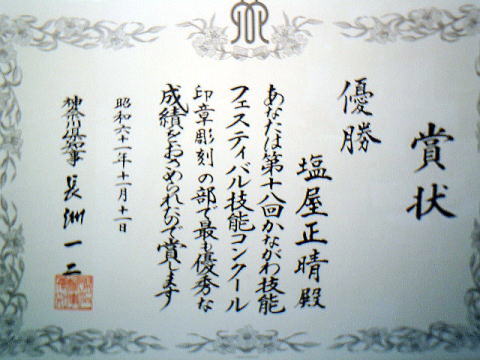 賞状
優勝
塩屋正晴殿
あなたは第十八回かながわ技能
フェスティバル技能コンクール
印章彫刻の部で最も優秀な
成績をおさめられたので賞します
昭和六十一年十一月十一日
神奈川県知事 長洲一二